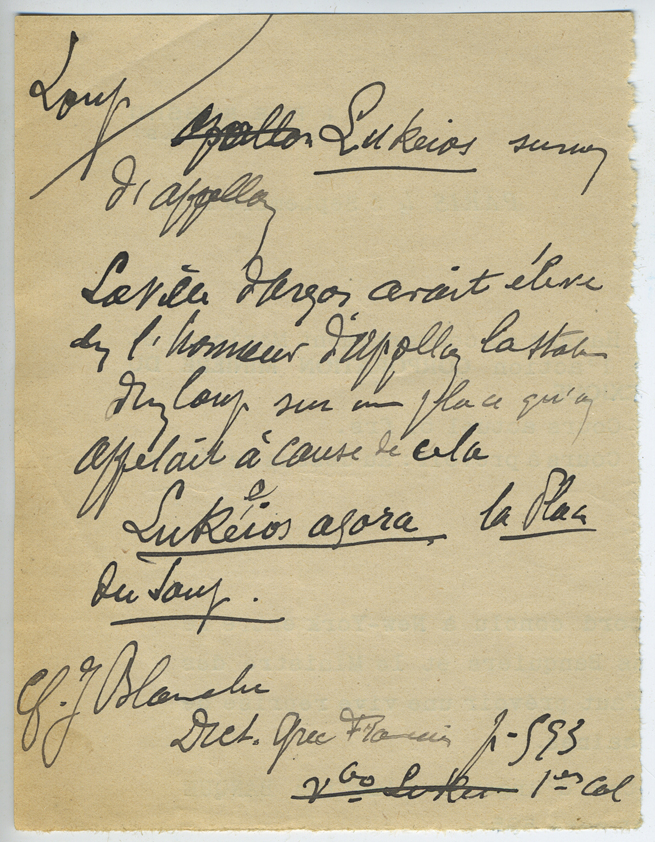 Loup
apollon Lukeios surnom
d'appollon
La Ville d'Argos avait élevé
en l'honneur d'appollon la statue
d'un loup sur une place qu'on
appelait à cause de cela
Lukéios agora, la Place
du Loup.
Cf. J Blanche
Dict. Grec Francais p-593
vbo 1er col